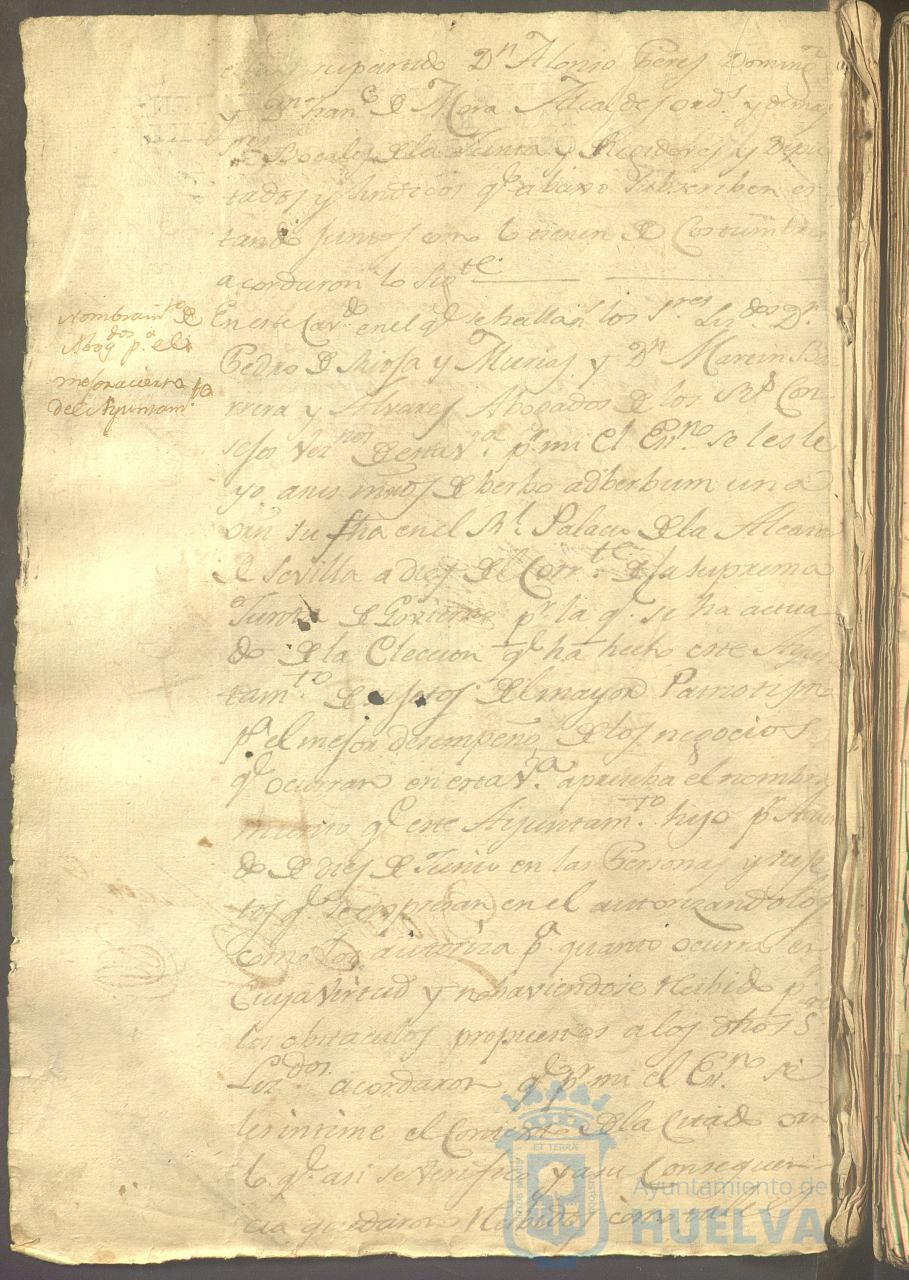 su partido Dn Alonso Perez Doming
y Dn Franco de Mora Alcaldes ords y demas
Sres Bocales de la Junta y Rexidores y Dipu
tados y Sindicos qe abaxo Subscriben es
tando juntos como lo tienen de Costumbre
acordaron lo Sigte
Nombraimto de
Abogdos pa el
mejor acierto
del Ayuntamto
En este Cavdo en el qe se hallan los Sres Lizdos Dn
Pedro de Riosa y Murias y Dn Martin Ba
rrera y Alvarez Abogados de los Rs Con
sejos Veznos de esta Va pr mi el Esno se les le
yo a sus mrds de berbo adberbum una
orn su fha en el Rl Palacio de la Alcazar
de Sevilla a diez del Corrte de la Suprema
Junta de Govierno pr la qe se ha actua
do de la Eleccion qe ha hecho este Ayun
tamto de sugetos del mayor Patriotismo
pa el mejor desempeño de los negocios
qe ocurran en esta Va aprueba el nombra
miento qe este Ayuntamto hizo pr Acuer
do de diez de Junio en las Personas y suge
tos qe se expresan en el autorizandolos
como los autoriza pa quanto ocurra en
Cuya virtud y no haviendose Resibido pr
los obstaculos propuestos a los dhos Sres
Lizdos acordaron qe pr mi el Esno se
les intime el Contexto de la Citada orn
lo qe asi se verifico y a su Consequen
cia quedaron Resibidos como tales
ET TERRÆ
Ayuntamiento de
HUELVA